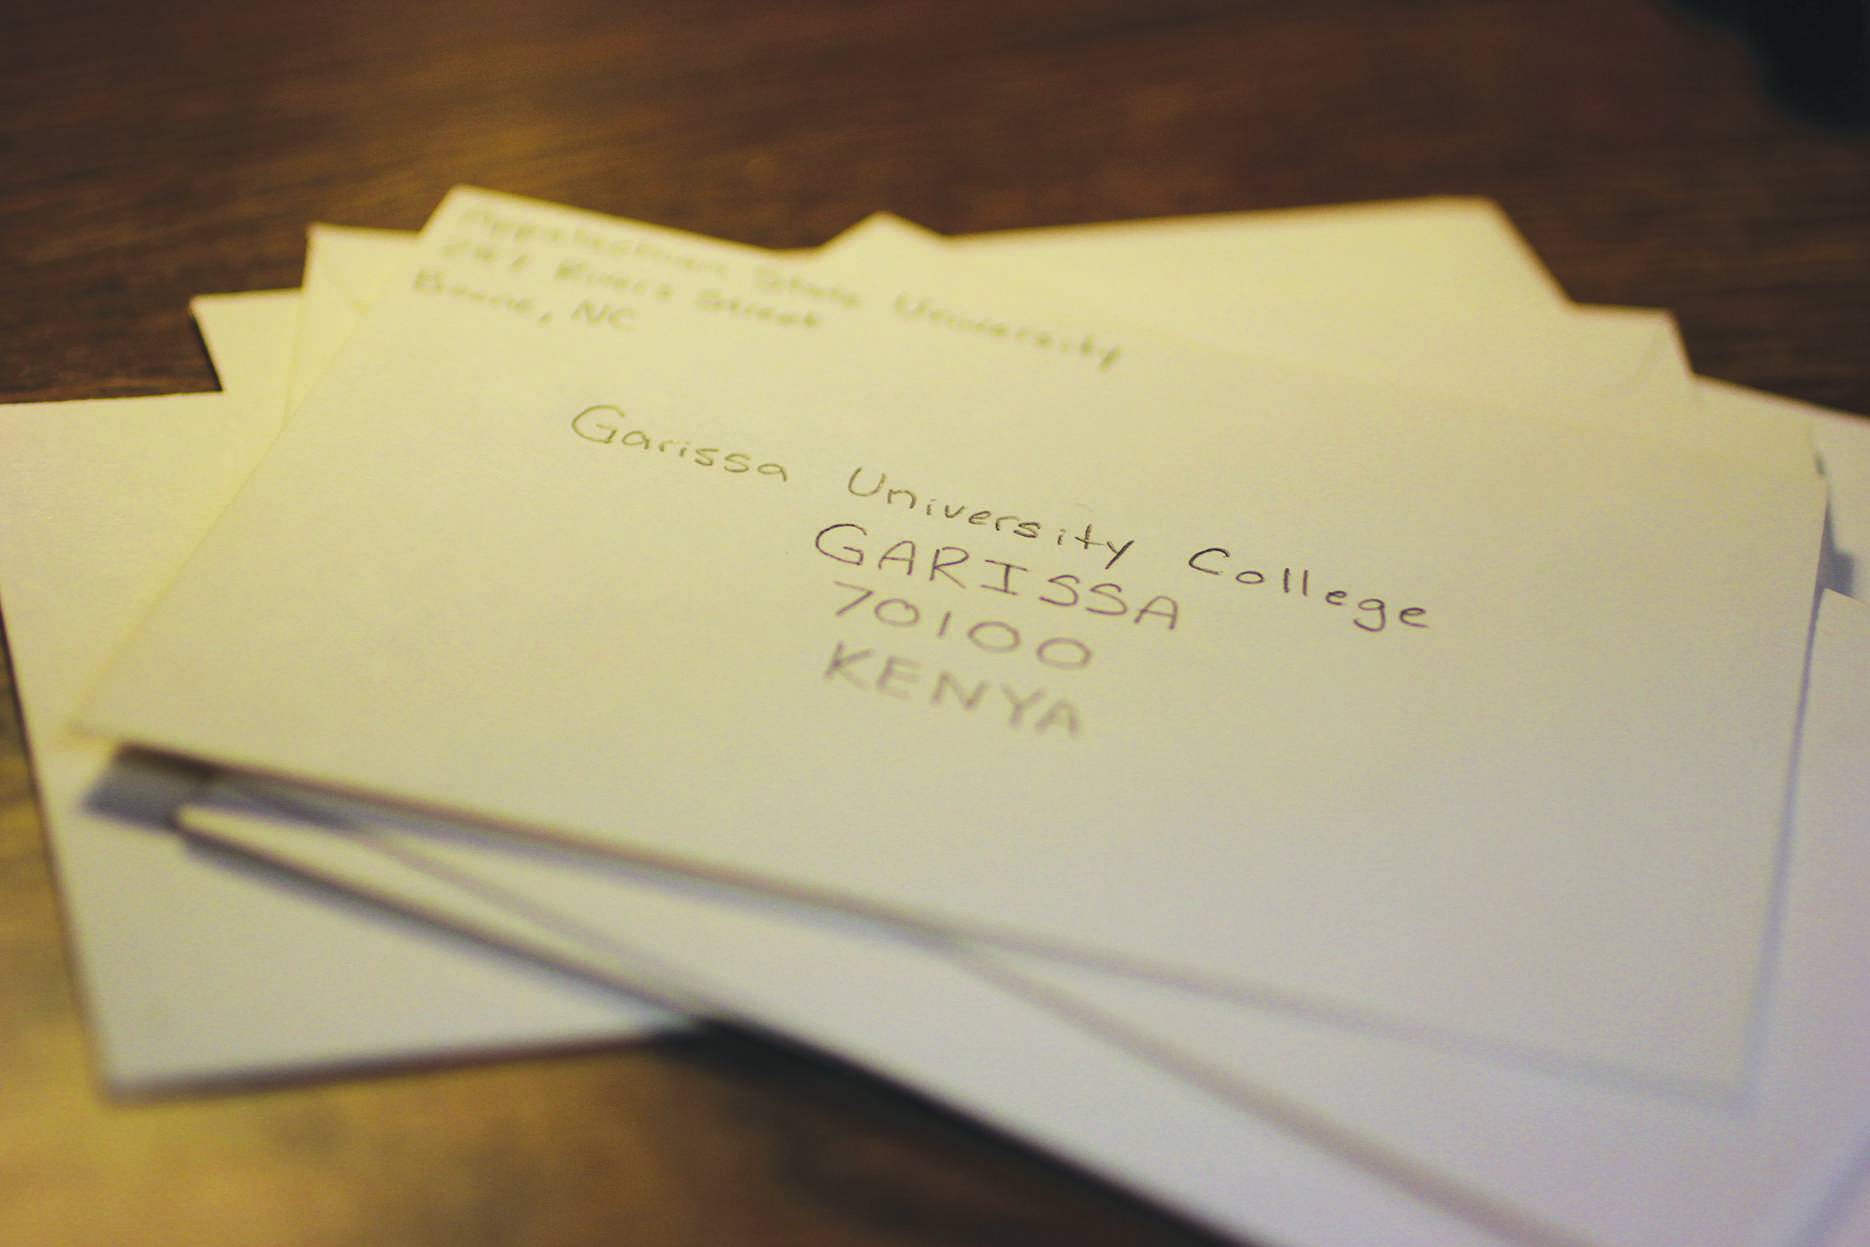 Appalachian State University
287 Rivers Street
Boone, NC
Garissa University College
GARISSA
70100
KENYA